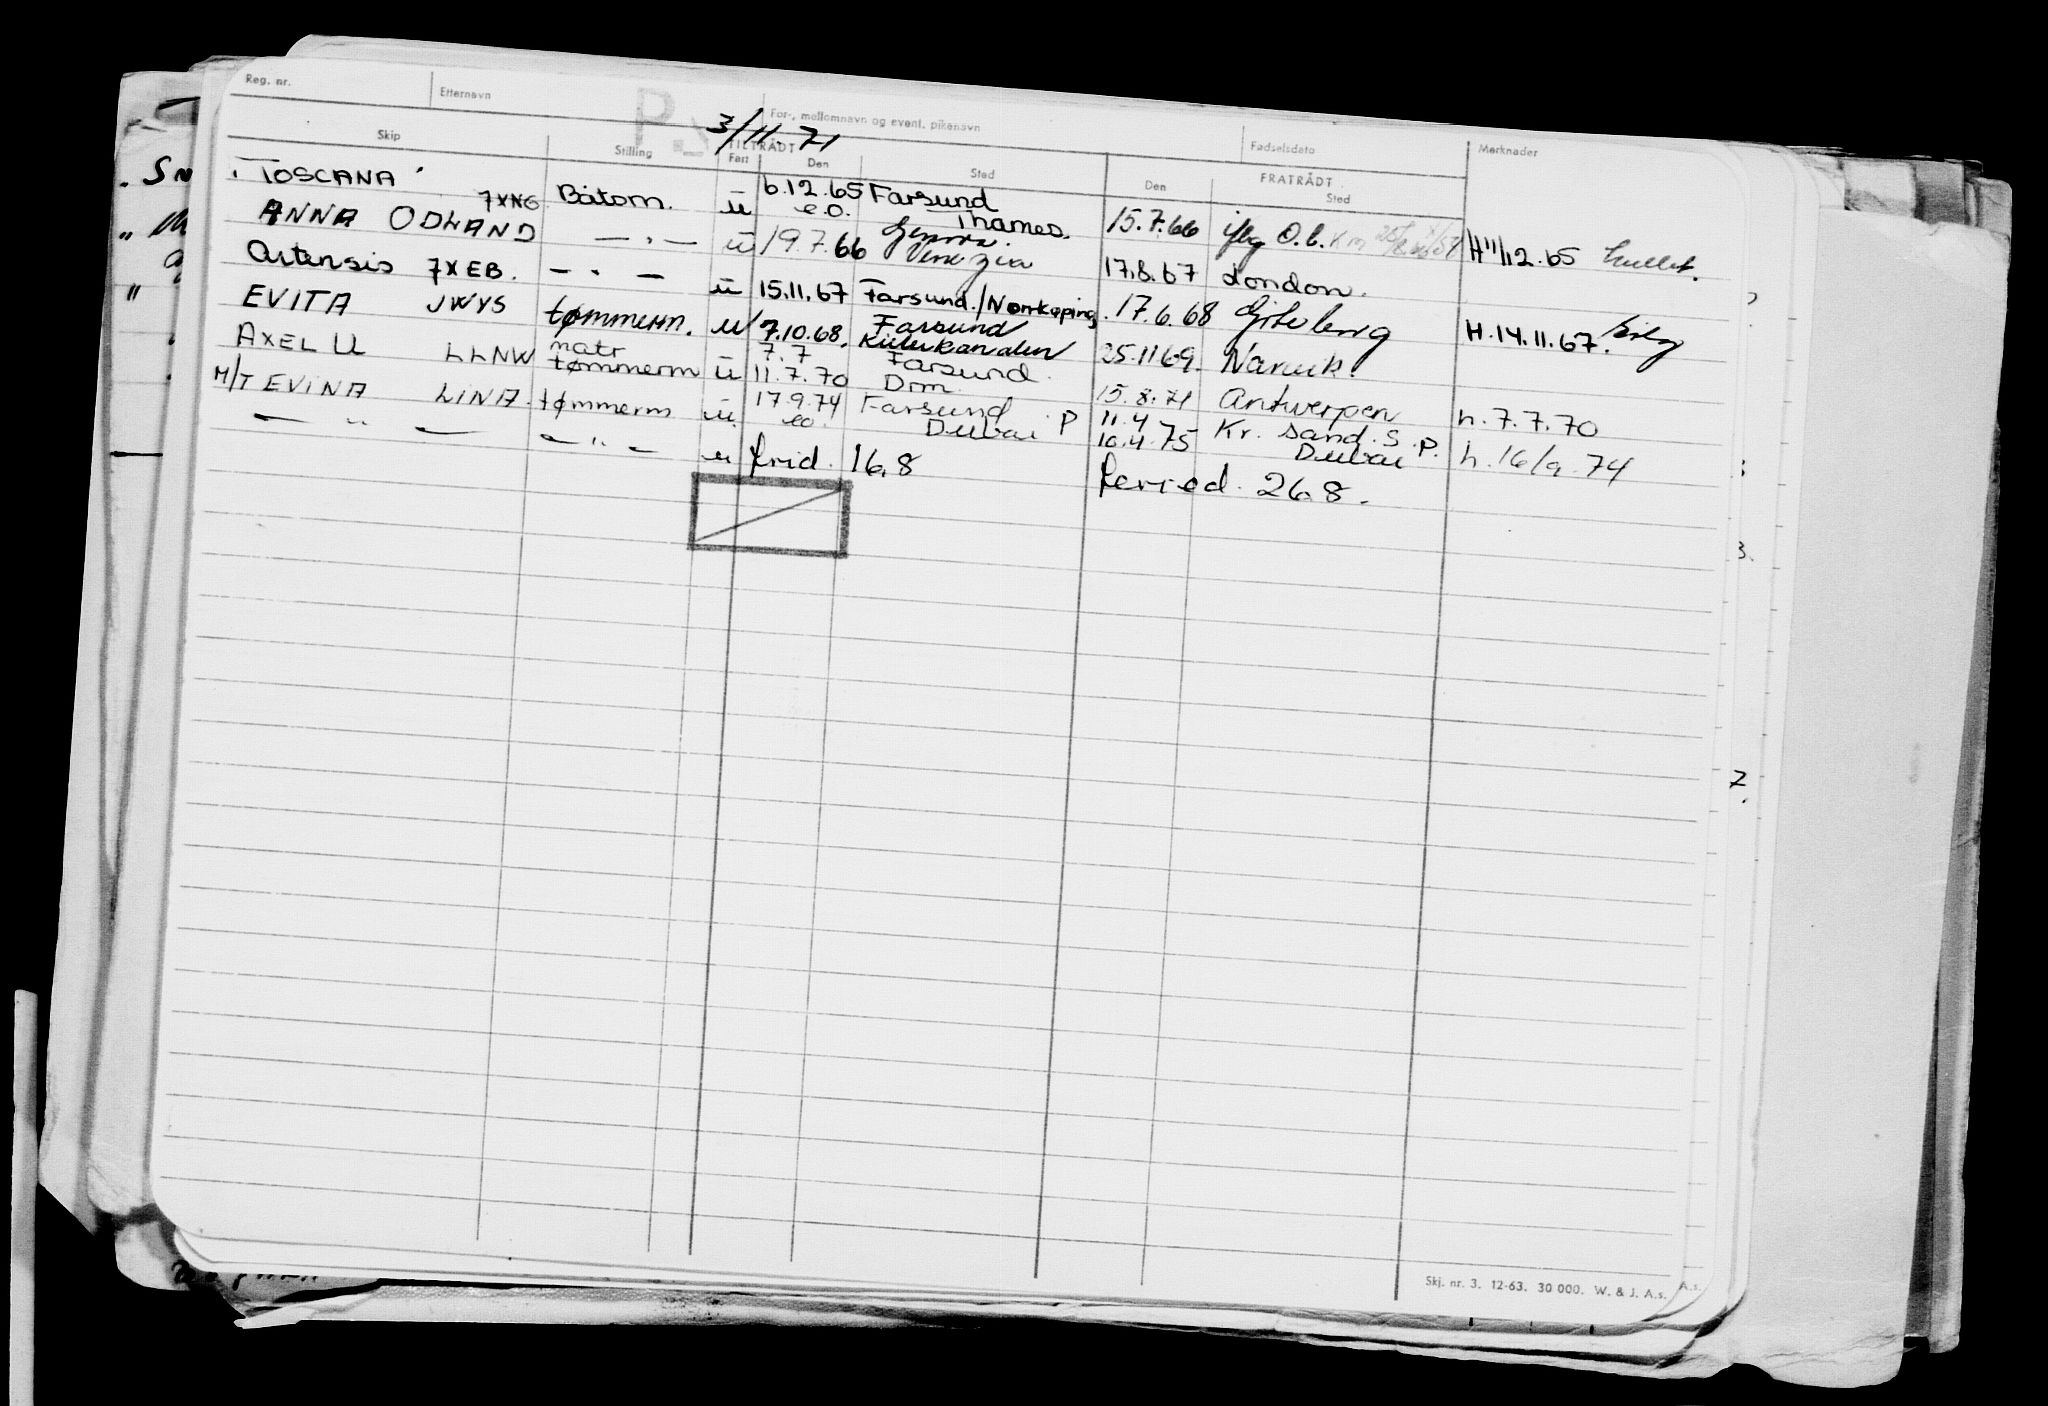 Reg. nr. Etternavn For-, mellomnavn og event. pikenavn Fødselsdato Merknader
P 3/11-71
Skip Stilling TILTRÅDT FRATRÅDT
Fart Den Sted Den Sted
"TOSCANA" 7XNG Båtsm. u 6.12.65 Farsund 15.7.66 O.b. H 11/12.65
e.o. Thames.
ANNA ODLAND — " — u 19.7.66 Genova. Venezia 17.8.67 London.
Artensis 7XEB. — " — u 15.11.67 Farsund./Norrkøping. 17.6.68 Gøteborg H.14.11.67.
EVITA JWYS tømmerm. u 7.10.68. Farsund Kielerkanalen 25.11 69. Narvik.
AXEL U LLNW matr tømmerm u 7.7 11.7.70 Farsund. Drm. 15.8.71 Antwerpen h. 7.7.70
M/T EVINA LINA tømmerm u. 17.9.74 Farsund P 11.4 Kr. sand. S. P. h. 16/9.74
eo. Dubai 10.4.75 Dubai
— " — — " — u frid. 16.8 feried. 26.8.
Skj. nr. 3. 12-63. 30 000. W. & J. A.s. A.s.